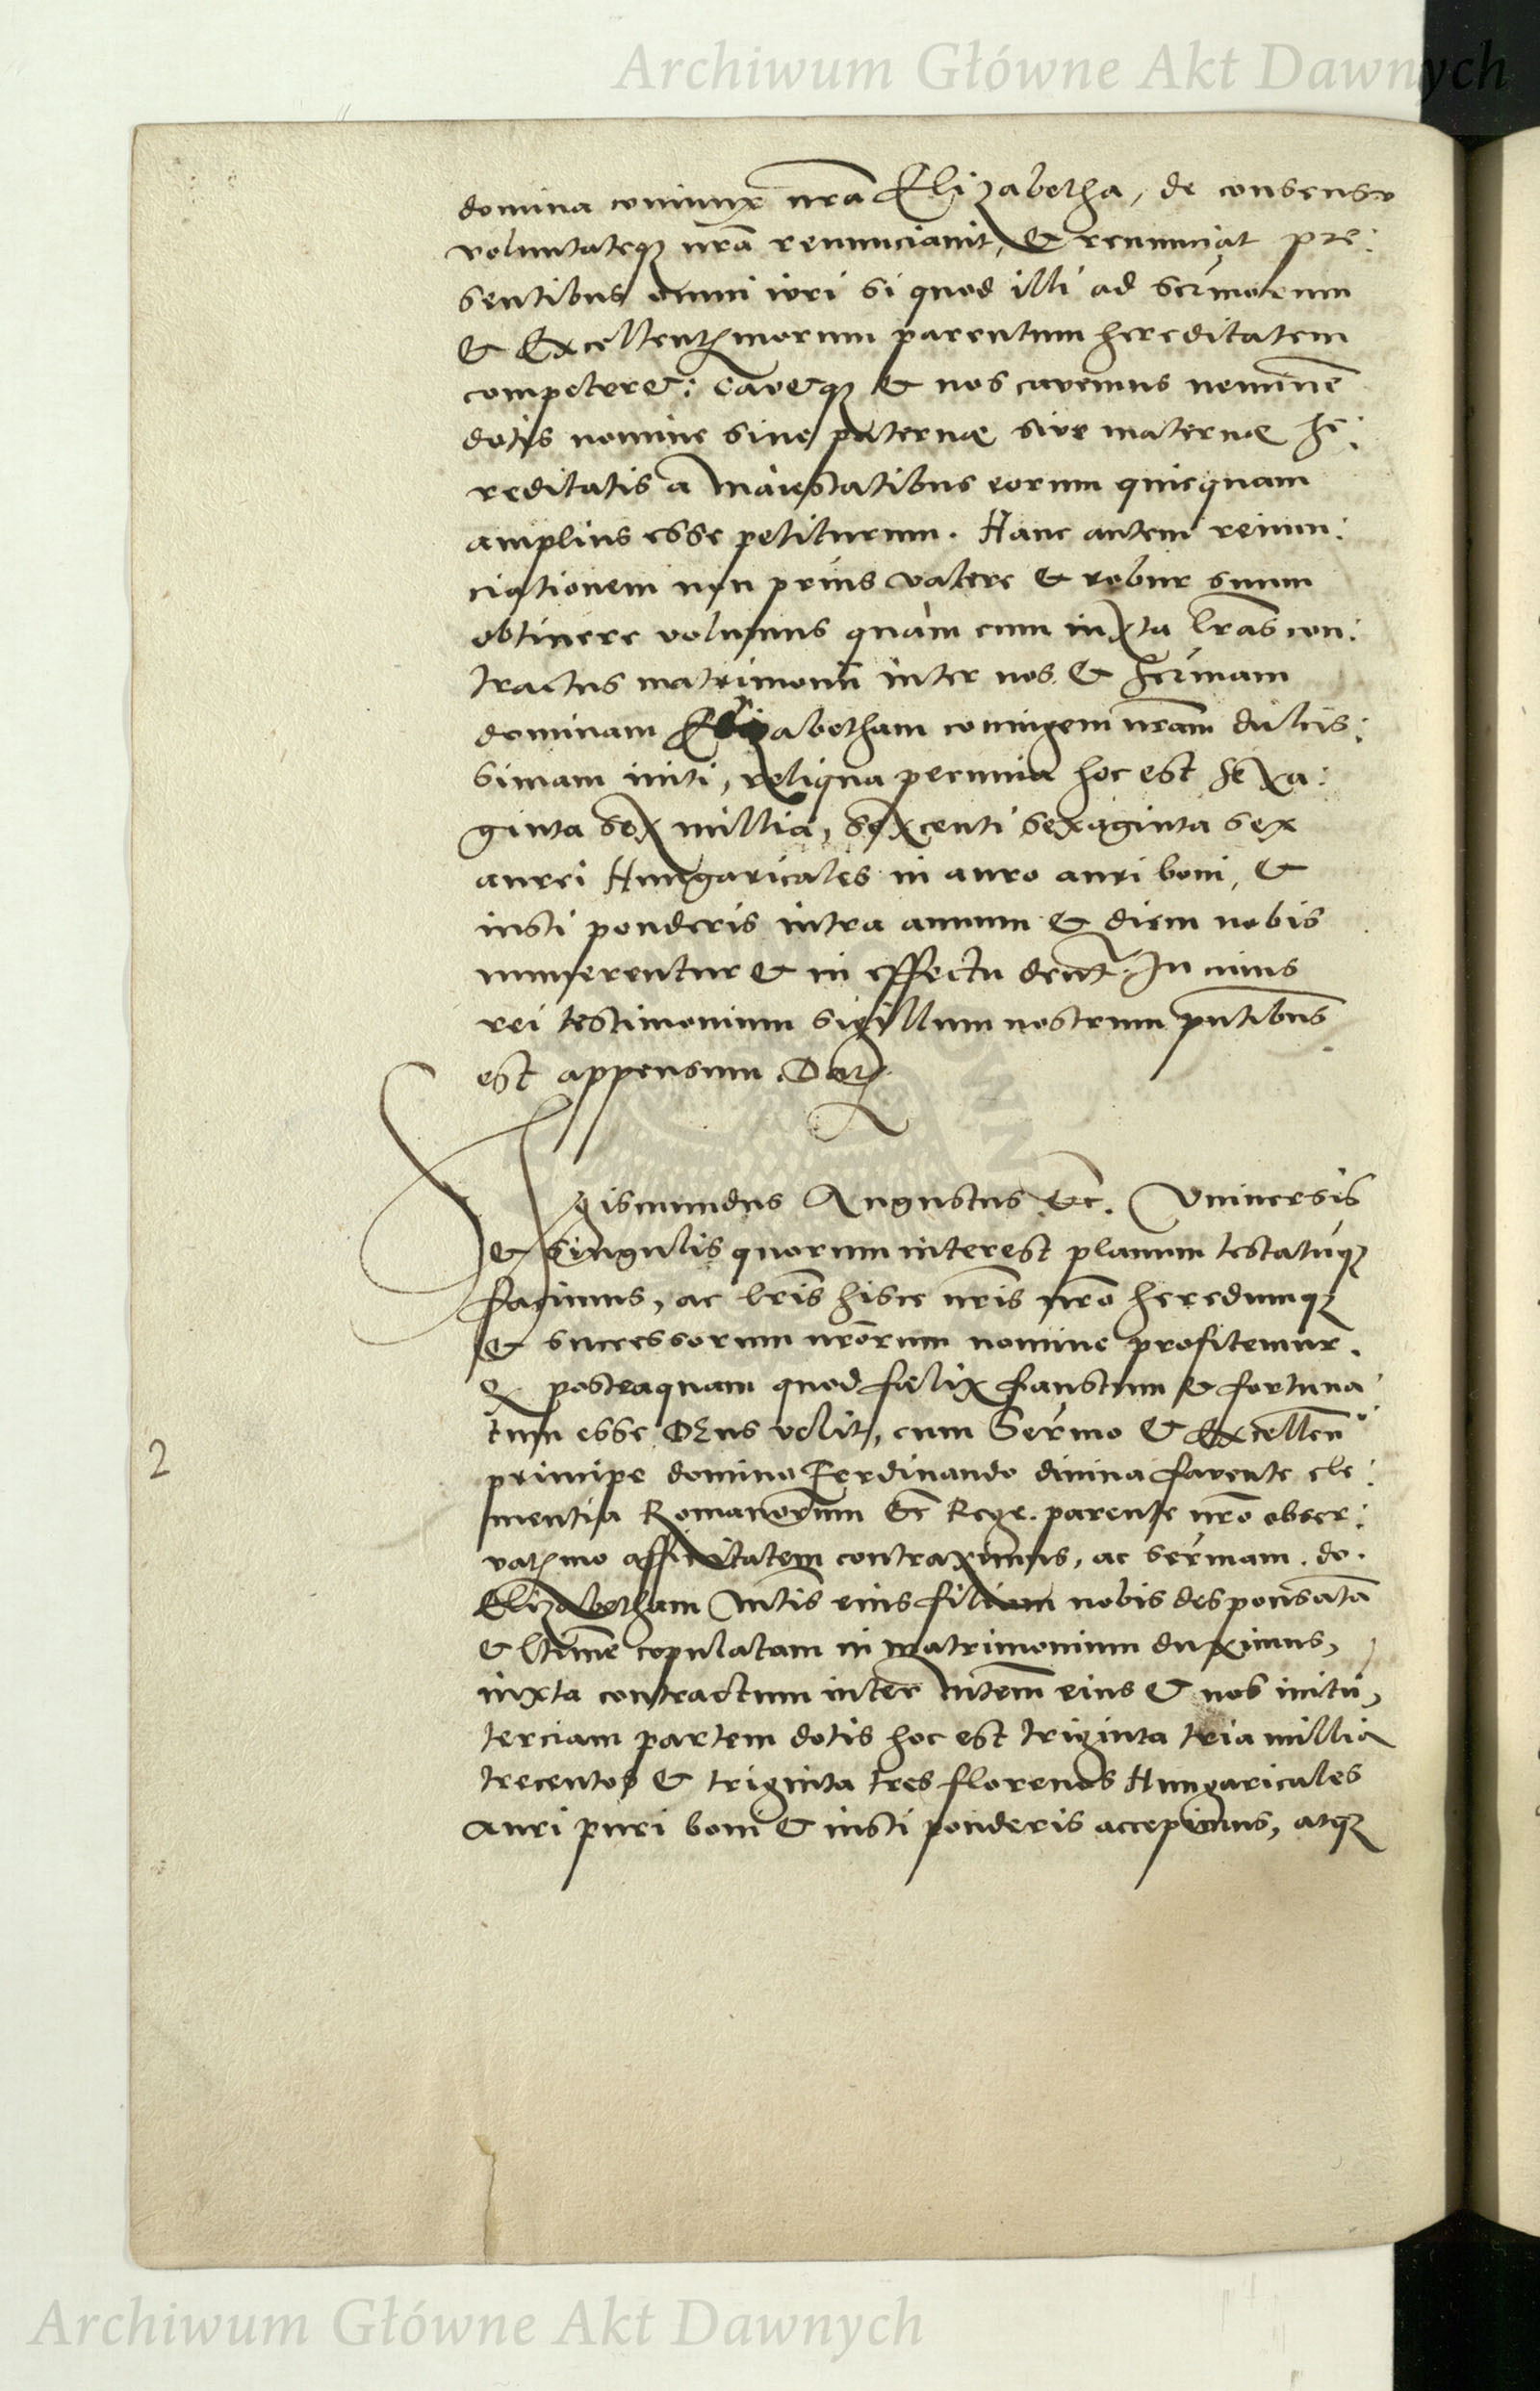 Archiwum Główne Akt Dawnych
domina coniunx nrã Elizabetha, de consensu
voluntateq3 nrã renunciavit, & renunciat pre:
sentibus omni iuri si quod illi ad sermorum
& Excellentmorum parentum hereditatem
competeret: cavetq3 & nos cavemus neminẽ
dotis nomine sive paternæ sive maternæ he:
reditatis a maiestatibus eorum quicquam
amplius esse petiturum. Hanc autem renun:
ciationem non prius valere & robur suum
obtinere volumus quàm cum iuxta lrãs con:
tractus matrimonii inter nos & sermam
dominam Elizabetham coniugem nrãm dulcis:
simam initi, reliqua pecunia hoc est sexa:
ginta sex millia, sexcenti sexaginta sex
aurei Hungaricales in auro auri boni, &
iusti ponderis intra annum & diem nobis
numerentur & in effectu dentr. In cuius
rei testimonium sigillum nostrum pntibus
est appensum. Dat
Sigismundus Augustus &c. Universis
& singulis quorum interest planum testatũq3
facimus, ac lrĩs hisce nrĩs nrõ heredumq3
& successorum nrõrum nomine profitemur.
q posteaquam quod fælix faustum & fortuna
tum esse DEus velit, cum Sermo & Excellen
2
principe domino Ferdinando divina favente cle:
mentia Romanorum &c Rege. parente nrõ obser:
vatmo affinitatem contraximus, ac sermam. do.
Elizabetham Mtis eius filiam nobis desponsatã
& ltime copulatam in matrimonium duximus,
iuxta contractum inter Mtem eius & nos initũ,
terciam partem dotis hoc est triginta tria millia
trecentos & triginta tres florenos Hungaricales
auri puri boni & iusti ponderis accepimus, atq3
Archiwum Główne Akt Dawnych